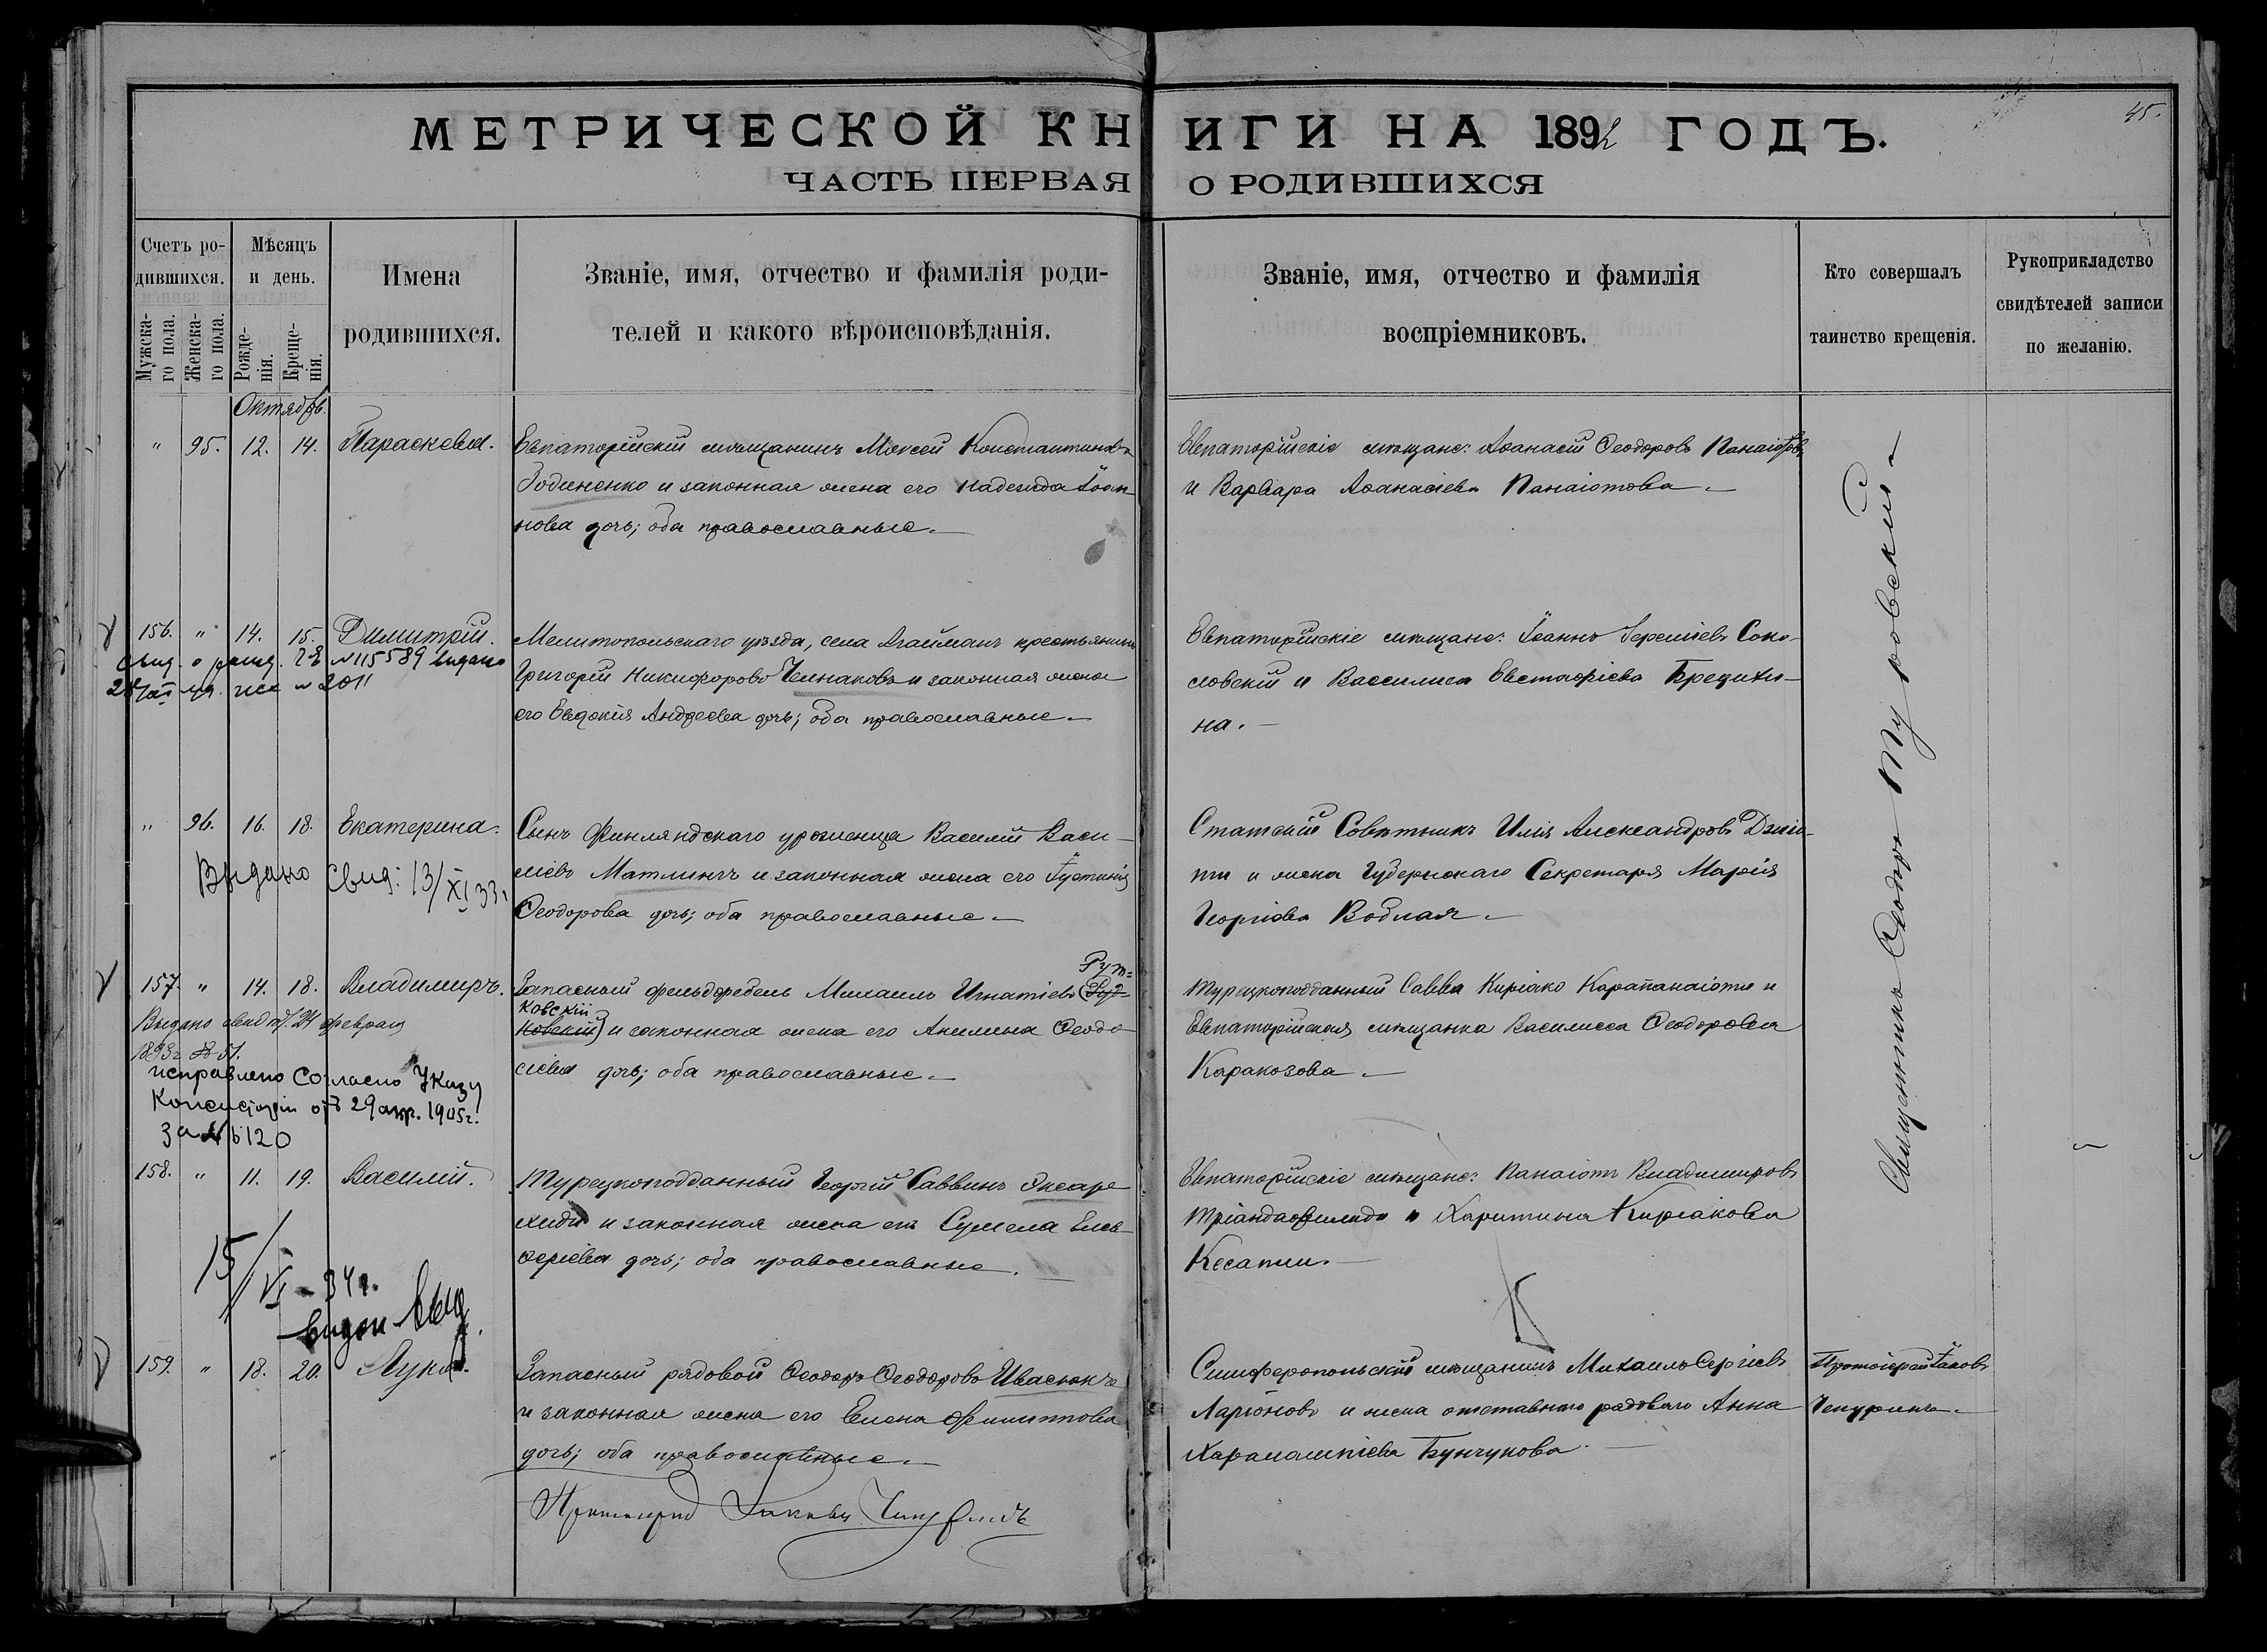 45.
МЕТРИЧЕСКОЙ КНИГИ НА 1892 ГОДЪ.
ЧАСТЬ ПЕРВАЯ О РОДИВШИХСЯ
Счетъ ро-
дившихся.
Мужска-
го пола.
Женска-
го пола.
Мѣсяцъ
и день.
Рожде-
нія.
Креще-
нія.
Имена
родившихся.
Званіе, имя, отчество и фамилія роди-
телей и какого вѣроисповѣданія.
Званіе, имя, отчество и фамилія
воспріемниковъ.
Кто совершалъ
таинство крещенія.
Рукоприкладство
свидѣтелей записи
по желанію.
Октябрь.
" 95. 12. 14. Параскева.
Евпаторійскій мѣщанинъ Моисей Константиновъ
Зодиненко и законная жена его Надежда Іоан-
нова дочь; оба православные.
Евпаторійскіе мѣщане: Аѳанасій Ѳеодоровъ Панаіотовъ
и Варвара Аѳанасіева Панаіотова.
156. " 14. 15. Димитрій.
свид. о рожд. №115589 выдано
Мелитопольскаго уѣзда, села Агайманъ крестьянинъ
Григорій Никифоровъ Челнаковъ и законная жена
его Евдокія Андреева дочь; оба православные.
Евпаторійскіе мѣщане: Іоаннъ Іереміевъ Соко-
ловскій и Василиса Евстафіева Брецихи-
на.
" 96. 16. 18. Екатерина.
Выдано свид: 13/XI 33г
Сынъ Финляндскаго уроженца Василій Васи-
ліевъ Матлингъ и законная жена его Іустинія
Ѳеодорова дочь; оба православные.
Статскій Совѣтникъ Илія Александровъ
и жена Губернскаго Секретаря Марія
Георгіева Водлая.
157. " 14. 18. Владимиръ.
Выдано свид. 24 февраля
1893г № 51.
исправлено Согласно Указу
Консисторіи отъ 29 апр. 1905г.
за №6120
Рут=
Запасный фельдфебель Михаилъ Игнатіевъ (Буд=
ковскій
ковскій) и законная жена его Акилина Ѳеодо-
сіева дочь; оба православные.
Турецкоподданный Савва Киріако Карапанаіоти и
Евпаторійская мѣщанка Василисса Ѳеодорова
Каракозова.
158. " 11. 19. Василій.
15/VI-34г.
выдан
Турецкоподданный Георгій Саввинъ Яксаре
хиди и законная жена его Сумела Елев-
ѳеріева дочь; оба православные.
Евпаторійскіе мѣщане: Панаіотъ Владимировъ
Тріандафилиди и Харитина Киріакова
Кесапли.
159. " 18. 20. Лука.
Запасный рядовой Ѳеодоръ Ѳеодоровъ Ивасюкъ
и законная жена его Елена Филиппова
дочь; оба православные.
Симферопольскій мѣщанинъ Михаилъ Сергіевъ
Ларіоновъ и жена отставного рядового Анна
Харалампіева Бунчукова.
Протоіерей Іаковъ
Чепуринъ.
Священникъ Ѳеодоръ Туровскій
Протоіерей Іаковъ Чепуринъ